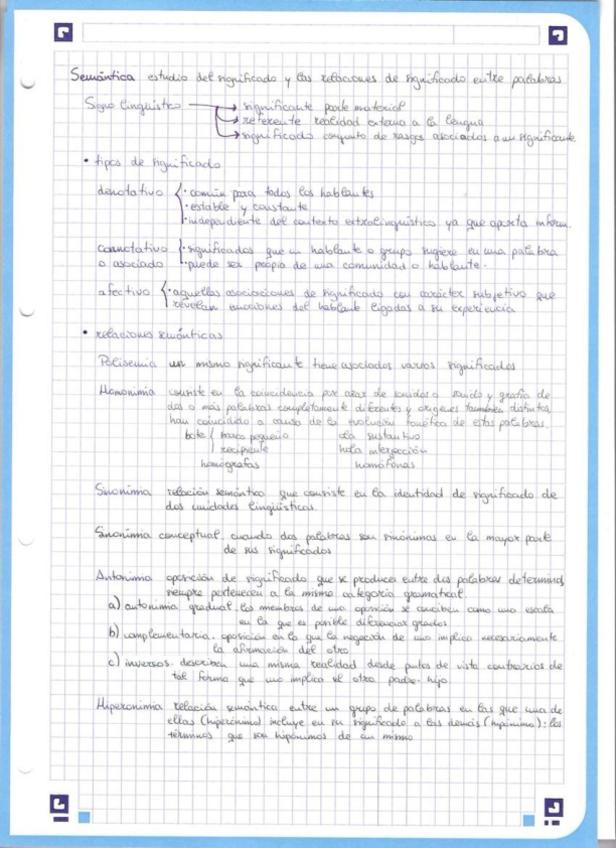 Semántica estudio del significado y las relaciones de significado entre palabras
Signo lingüístico → significante parte material
→ referente realidad externa a la lengua
→ significado conjunto de rasgos asociados a un significante.
• tipos de significado
denotativo · común para todos los hablantes
· estable y constante
· independiente del contexto extralingüístico ya que aporta inform.
connotativo · significados que un hablante o grupo sugiere en una palabra
o asociado · puede ser propio de una comunidad o hablante.
afectivo · aquellas asociaciones de significado con carácter subjetivo que
revelan emociones del hablante ligadas a su experiencia
• relaciones semánticas
Polisemia un mismo significante tiene asociados varios significados
Homonimia consiste en la coincidencia por azar de sonidos o sonido y grafía de
dos o más palabras completamente diferentes y orígenes también distintos,
han coincidido a causa de la evolución fonética de estas palabras.
bote barco pequeño ola sustantivo
recipiente hola interjección
homógrafas homófonas
Sinonimia relación semántica que consiste en la identidad de significado de
dos unidades lingüísticas.
Sinonimia conceptual. cuando dos palabras son sinónimas en la mayor parte
de sus significados
Antonimia oposición de significado que se produce entre dos palabras determind,
siempre pertenecen a la misma categoría gramatical.
a) antonimia gradual. los miembros de una oposición se conciben como una escala
en la que es posible diferenciar grados
b) complementaria. oposición en la que la negación de uno implica necesariamente
la afirmación del otro
c) inversos. describen una misma realidad desde puntos de vista contrarios de
tal forma que uno implica el otro padre-hijo
Hiperonimia relación semántica entre un grupo de palabras en las que una de
ellas (hiperónimo) incluye en su significado a las demás (hipónimo): los
términos que son hipónimos de un mismo